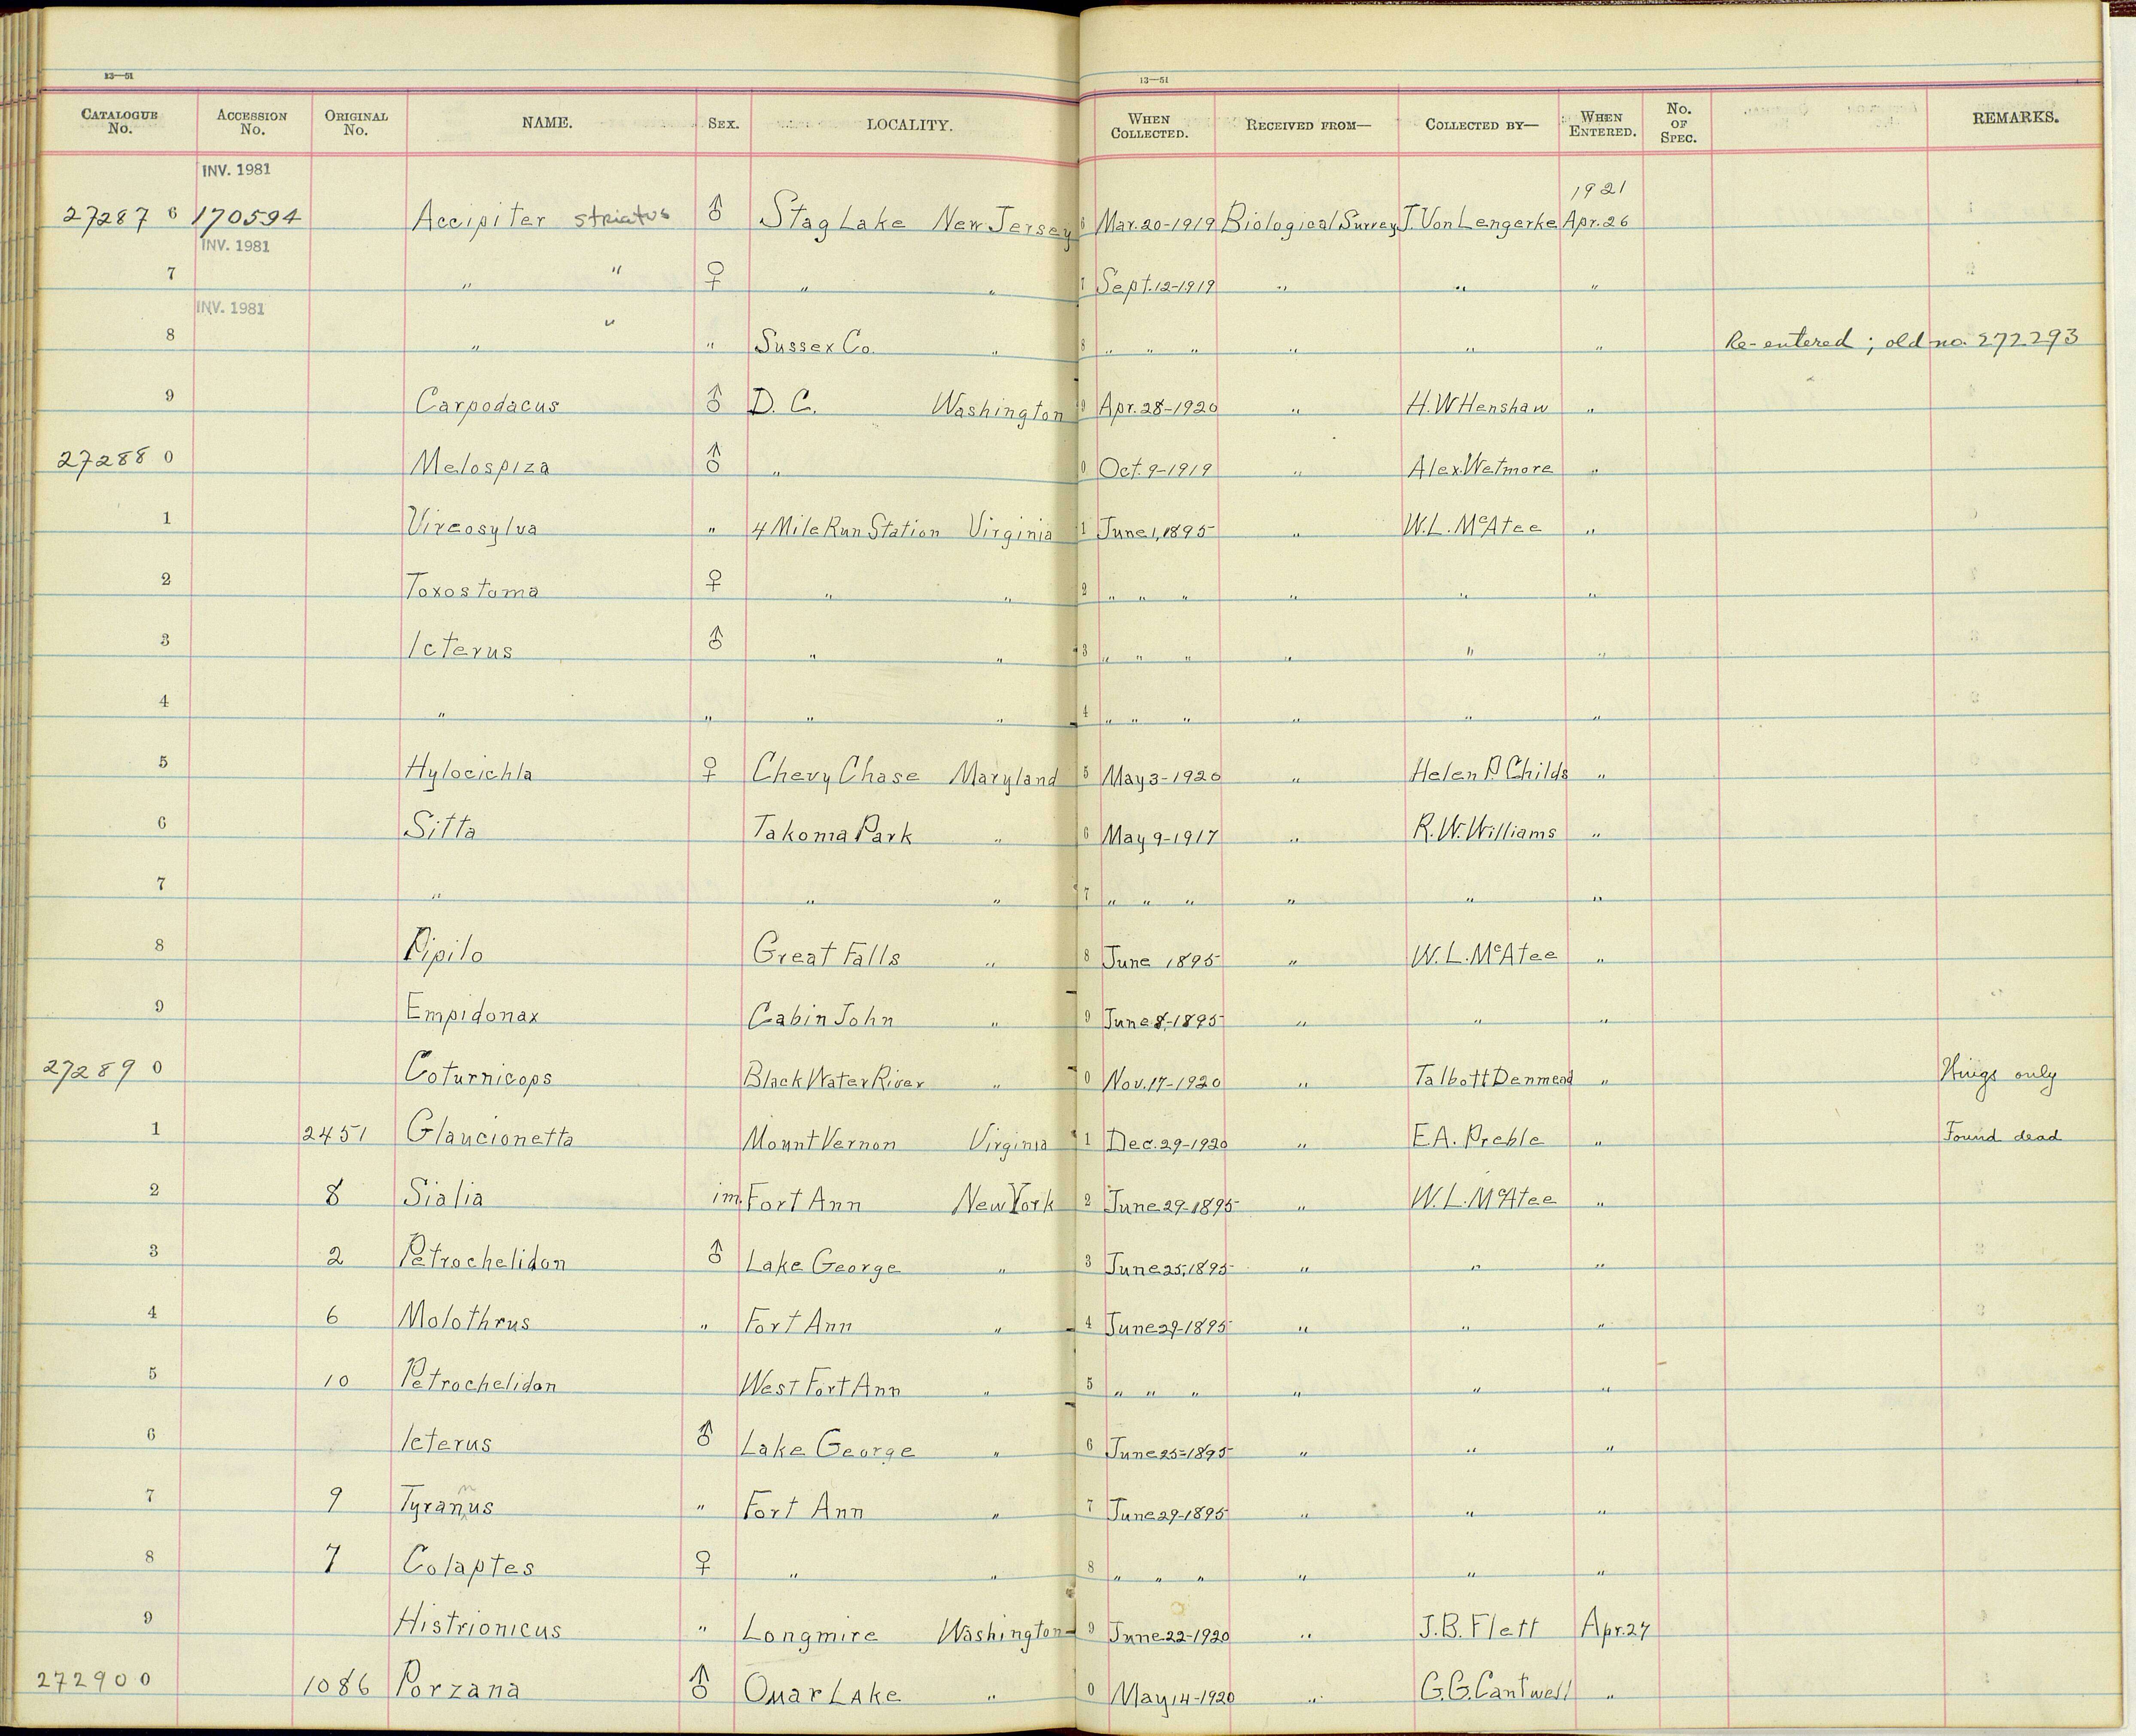 13—51 13—51
CATALOGUE No. ACCESSION No. ORIGINAL No. NAME. SEX. LOCALITY. WHEN COLLECTED. RECEIVED FROM— COLLECTED BY— WHEN ENTERED. No. OF SPEC. REMARKS.
INV. 1981
1921
27287 6 170594 Accipiter striatus ♂ Stag Lake New Jersey 6 Mar. 20-1919 Biological Survey J. Von Lengerke Apr. 26
INV. 1981
7 " " ♀ " " 7 Sept. 12-1919 " " "
INV. 1981
8 " " " Sussex Co. " 8 " " " " " " Re-entered; old no. 272293
9 Carpodacus ♂ D. C. Washington 9 Apr. 28-1920 " H. W Henshaw "
27288 0 Melospiza ♂ " 0 Oct. 9-1919 " Alex. Wetmore "
1 Vireosylva " 4 Mile Run Station Virginia 1 June 1, 1895 " W. L. McAtee "
2 Toxostoma ♀ " " 2 " " " " " "
3 Icterus ♂ " " 3 " " " " " "
4 " " " " 4 " " " " " "
5 Hylocichla ♀ Chevy Chase Maryland 5 May 3-1920 " Helen P Childs "
6 Sitta Takoma Park " 6 May 9-1917 " R. W. Williams "
7 " " " 7 " " " " " "
8 Pipilo Great Falls " 8 June 1895 " W. L. McAtee "
9 Empidonax Cabin John " 9 June 8, -1895 " " "
27289 0 Coturnicops Black Water River " 0 Nov. 17-1920 " Talbott Denmead " Wings only
1 2451 Glaucionetta Mount Vernon Virginia 1 Dec. 29-1920 " E. A. Preble " Found dead
2 8 Sialia im. Fort Ann New York 2 June 29-1895 " W. L. McAtee "
3 2 Petrochelidon ♂ Lake George " 3 June 25, 1895 " " "
4 6 Molothrus " Fort Ann " 4 June 29-1895 " " "
5 10 Petrochelidon West Fort Ann " 5 " " " " " "
6 Icterus ♂ Lake George " 6 June 25-1895 " " "
7 9 Tyrannus " Fort Ann " 7 June 29-1895 " " "
8 7 Colaptes ♀ " " 8 " " " " " "
9 Histrionicus " Longmire Washington 9 June 22-1920 " J. B. Flett Apr. 27
272900 1086 Porzana ♂ Omar Lake " 0 May 14-1920 " G. G. Cantwell "